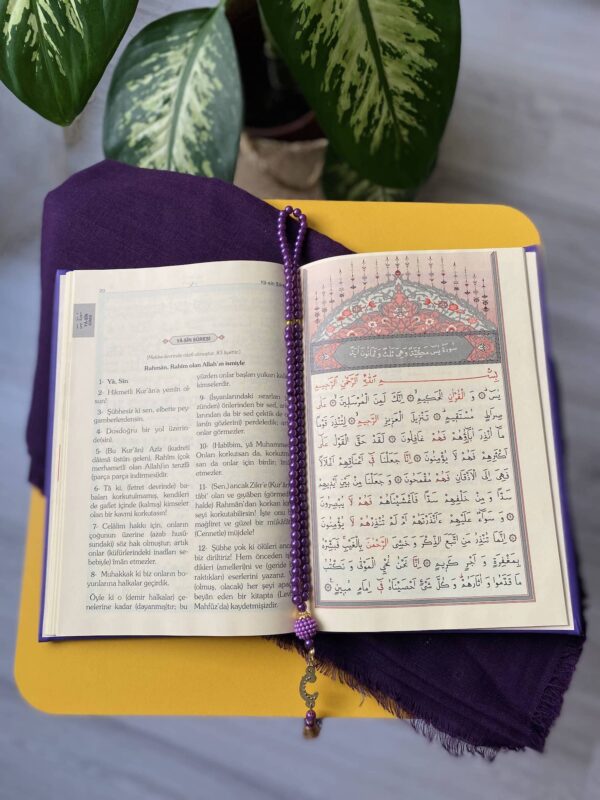 YÂ-SÎN SÛRESİ
Rahmân, Rahîm olan Allah'ın ismiyle
1- Yâ, Sîn.
2- Hikmetli Kur'ân'a yemin ol-
sun!
3- Şübhesiz ki sen, elbette pey-
gamberlerdensin.
4- Dosdoğru bir yol üzerin-
desin.
5- (Bu Kur'ân) Azîz (kudreti
dâimâ üstün gelen), Rahîm (çok
merhametli olan Allah)'ın tenzîli
(parça parça indirmesi)dir.
6- Tâ ki, (fetret devrinde) ba-
baları korkutulmamış, kendileri
de gaflet içinde (kalmış) kimseler
olan bir kavmi korkutasın!
7- Celâlim hakkı için, onların
çoğunun üzerine (azab husû-
sundaki) söz hak olmuştur; artık
onlar (küfürlerindeki inadları se-
bebiyle) îmân etmezler.
8- Muhakkak ki biz onların bo-
yunlarına halkalar geçirdik.
Öyle ki o (demir halkalar) çe-
nelerine kadar (dayanmış)tır; bu
yüzden onlar başları yukarı
kimselerdir.
9- (İsyanlarındaki ısrarları
zünden) önlerinden bir sed, ar-
larından da bir sed çektik de
ların gözlerini) perdeledik; ar
onlar görmezler.
10- (Habîbim, yâ Muhammed
Onları korkutsan da, korkutm
san da onlar için birdir; îm
etmezler.
11- (Sen,) ancak Zikr'e (Kur'ân
tâbi' olan ve gıyâben (görmed
halde) Rahmân'dan korkan
seyi korkutabilirsin! İşte onu
mağfiret ve güzel bir mükâfâ
(Cennetle) müjdele!
12- Şübhe yok ki ölüleri ancak
biz diriltiriz! Hem önceden
dikleri (amellerini) ve (geride
raktıkları) eserlerini yazarız.
(olmuş, olacak) her şeyi apaçık
beyân eden bir kitapta (Lev
Mahfûz'da) kaydetmişizdir.
سُورَةُ يٰسٓ مَكِّيَّةٌ وَهِيَ ثَلٰثٌ وَثَمَانُونَ اٰيَةً
بِسْمِ اللّٰهِ الرَّحْمٰنِ الرَّحِيمِ
يٰسٓ وَالْقُرْاٰنِ الْحَكِيمِ اِنَّكَ لَمِنَ الْمُرْسَلِينَ عَلٰى
صِرَاطٍ مُسْتَقِيمٍ تَنْزِيلَ الْعَزِيزِ الرَّحِيمِ لِتُنْذِرَ قَوْمًا
مَا اُنْذِرَ اٰبَاؤُهُمْ فَهُمْ غَافِلُونَ لَقَدْ حَقَّ الْقَوْلُ عَلٰى
اَكْثَرِهِمْ فَهُمْ لَا يُؤْمِنُونَ اِنَّا جَعَلْنَا فِي اَعْنَاقِهِمْ اَغْلَالًا
فَهِيَ اِلَى الْاَذْقَانِ فَهُمْ مُقْمَحُونَ وَجَعَلْنَا مِنْ بَيْنِ اَيْدِيهِمْ
سَدًّا وَمِنْ خَلْفِهِمْ سَدًّا فَاَغْشَيْنَاهُمْ فَهُمْ لَا يُبْصِرُونَ
وَسَوَاءٌ عَلَيْهِمْ ءَاَنْذَرْتَهُمْ اَمْ لَمْ تُنْذِرْهُمْ لَا يُؤْمِنُونَ
اِنَّمَا تُنْذِرُ مَنِ اتَّبَعَ الذِّكْرَ وَخَشِيَ الرَّحْمٰنَ بِالْغَيْبِ فَبَشِّرْهُ
بِمَغْفِرَةٍ وَاَجْرٍ كَرِيمٍ اِنَّا نَحْنُ نُحْيِي الْمَوْتٰى وَنَكْتُبُ
مَا قَدَّمُوا وَاٰثَارَهُمْ وَكُلَّ شَيْءٍ اَحْصَيْنَاهُ فِي اِمَامٍ مُبِينٍ